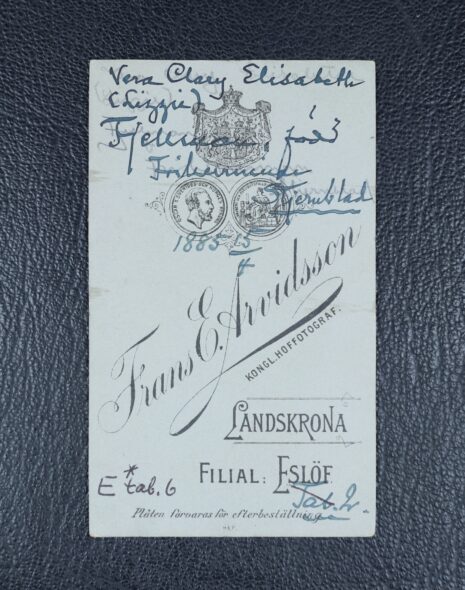 Vera Clary Elisabeth
(Lizzie)
född
Friherrinna
Stjernblad
1885 15/4
Frans E. Arvidsson
KONGL. HOFFOTOGRAF.
LANDSKRONA
FILIAL: ESLÖF.
E * tab. 6
Tab. 2.
Plåten förvaras för efterbeställning